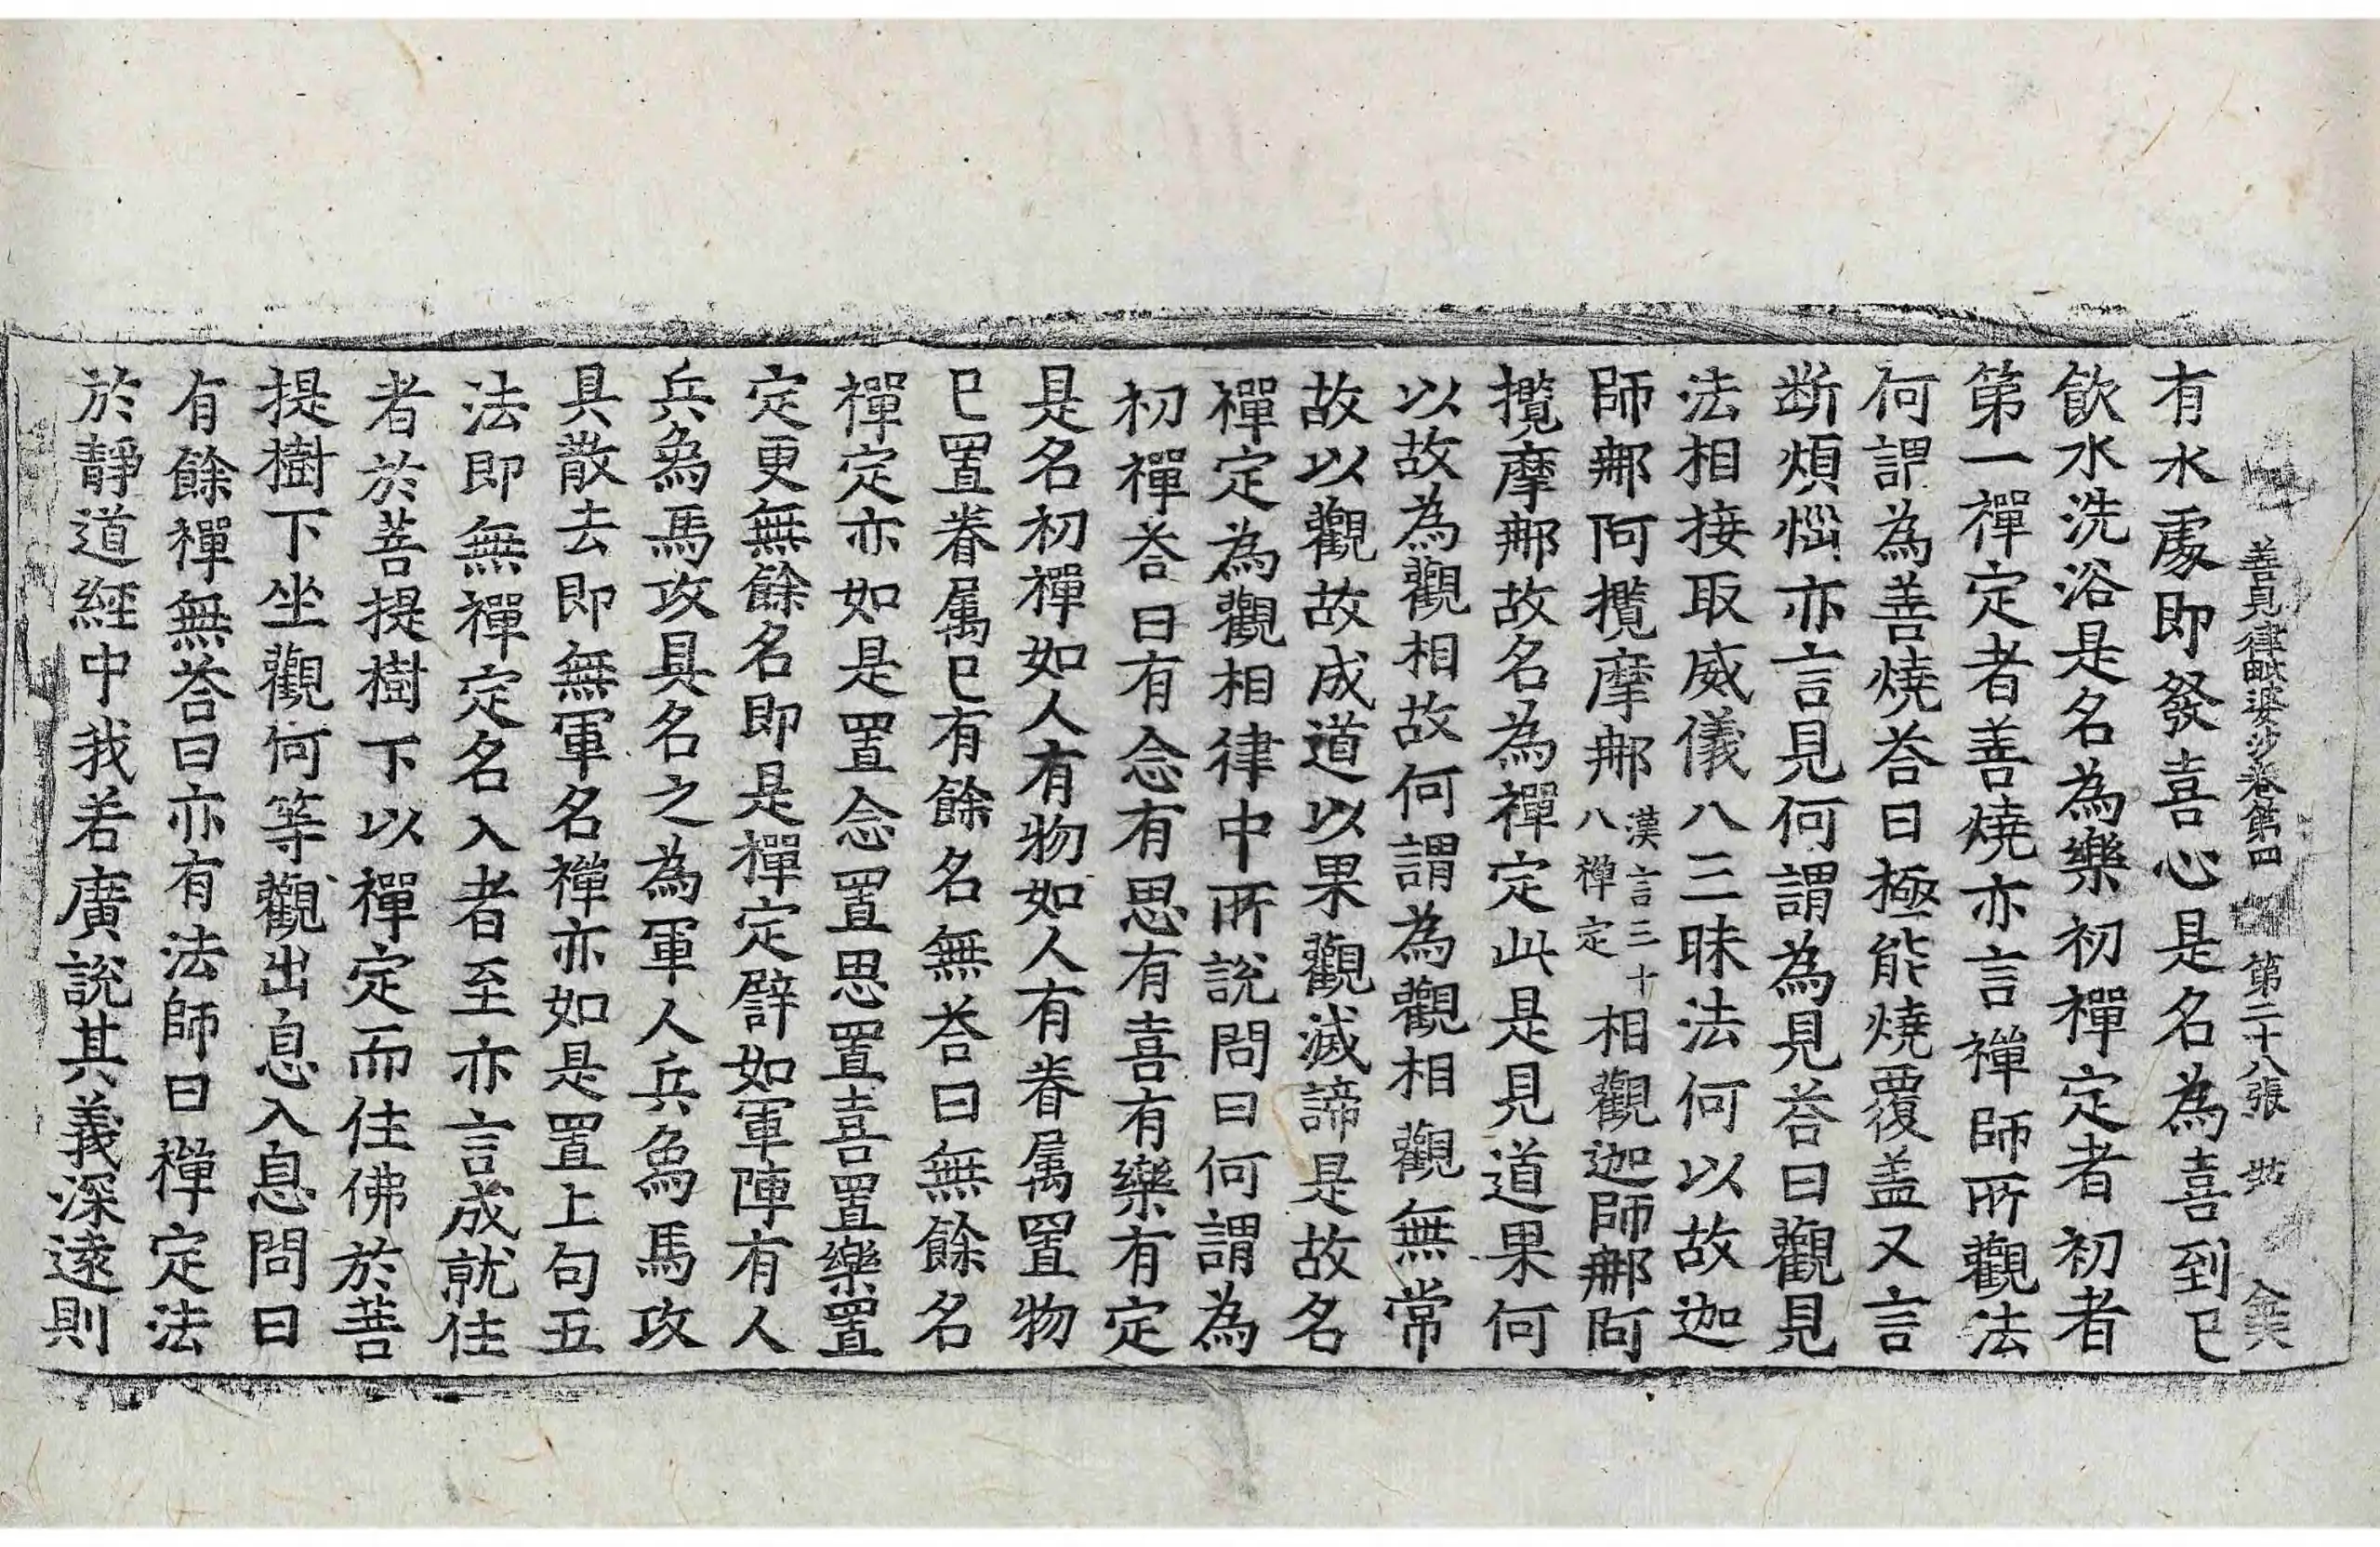 善見律毗婆沙卷第四 第二十八張
有水處即發喜心是名為喜到已
飲水洗浴是名為樂初禪定者初者
第一禪定者善燒亦言禪師所觀法
何謂為善燒荅曰極能燒覆盖又言
断煩惱亦言見何謂為見荅曰觀見
法相接取威儀八三昧法何以故迦
師那阿攬摩那漢言三十八禪定相觀迦師那阿
攬摩那故名為禪定此是見道果何
以故為觀相故何謂為觀相觀無常
故以觀故成道以果觀滅諦是故名
禪定為觀相律中所說問曰何謂為
初禪荅曰有念有思有喜有樂有定
是名初禪如人有物如人有眷属置物
已置眷属已有餘名無荅曰無餘名
禪定亦如是置念置思置喜置樂置
定更無餘名即是禪定譬如軍陣有人
兵象馬攻具名之為軍人兵象馬攻
具散去即無軍名禪亦如是置上句五
法即無禪定名入者至亦言成就住
者於菩提樹下以禪定而住佛於菩
提樹下坐觀何等觀出息入息問曰
有餘禪無荅曰亦有法師曰禪定法
於靜道經中我若廣說其義深遠則